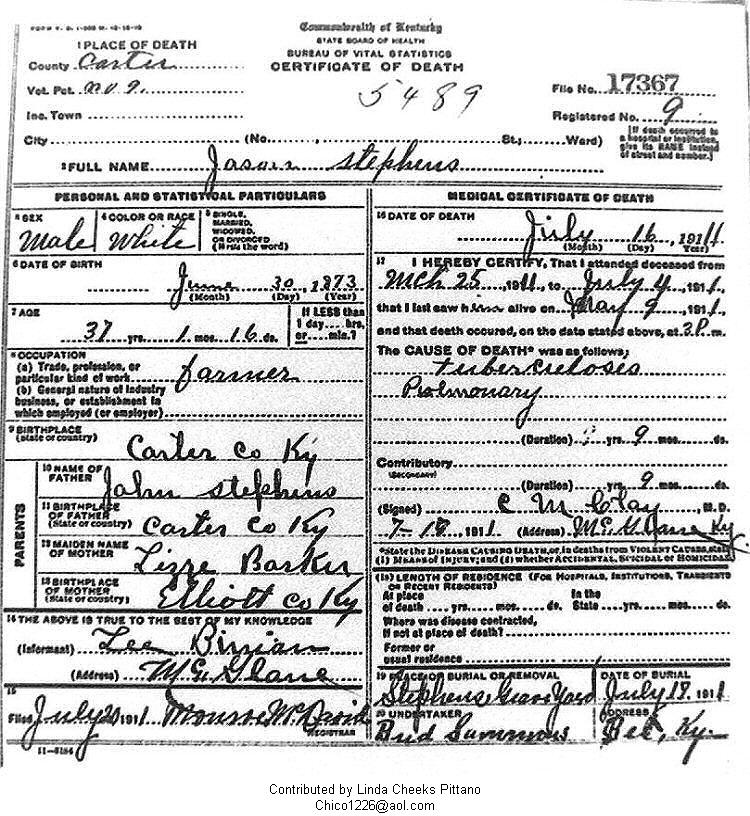 FORM V. S. 1-
Commonwealth of Kentucky
STATE BOARD OF HEALTH
BUREAU OF VITAL STATISTICS
CERTIFICATE OF DEATH
1 PLACE OF DEATH
County Carter
Vot. Pct. No 9.
Inc. Town
5489
File No. 17367
Registered No. 9
City (No. St.; Ward)
[If death occurred in
a hospital or institution,
give its NAME instead
of street and number.]
2 FULL NAME Jason Stephens
PERSONAL AND STATISTICAL PARTICULARS
3 SEX
Male
4 COLOR OR RACE
White
5 SINGLE,
MARRIED,
WIDOWED,
OR DIVORCED
(Write the word)
6 DATE OF BIRTH
June 30, 1873
(Month) (Day) (Year)
7 AGE
37 yrs. 1 mos. 16 ds.
If LESS than
1 day.... hrs.
or.... min.?
8 OCCUPATION
(a) Trade, profession, or
particular kind of work farmer
(b) General nature of industry
business, or establishment in
which employed (or employer)
9 BIRTHPLACE
(State or country)
Carter Co Ky
PARENTS
10 NAME OF
FATHER
John Stephens
11 BIRTHPLACE
OF FATHER
(State or country)
Carter Co Ky
12 MAIDEN NAME
OF MOTHER
Lizze Barker
13 BIRTHPLACE
OF MOTHER
(State or country)
Elliott Co Ky
14 THE ABOVE IS TRUE TO THE BEST OF MY KNOWLEDGE
(Informant) Lee
(Address) McGlane
15
Filed July 20 1911 Monroe McDavid
REGISTRAR
11-5184
MEDICAL CERTIFICATE OF DEATH
16 DATE OF DEATH
July 16, 1911
(Month) (Day) (Year)
17 I HEREBY CERTIFY, That I attended deceased from
Mch 25, 1911, to July 4, 1911,
that I last saw him alive on May 9, 1911,
and that death occured, on the date stated above, at 3 P. m.
The CAUSE OF DEATH* was as follows:
tuberculoses
Pulmonary
(Duration) yrs. 9 mos. ds.
Contributory
(Secondary)
(Duration) yrs. 9 mos. ds.
(Signed) C M Clay, M.D.
7-18, 1911 (Address) Ky
*State the DISEASE CAUSING DEATH, or, in deaths from VIOLENT CAUSES, state
(1) MEANS OF INJURY; and (2) whether ACCIDENTAL, SUICIDAL or HOMICIDAL.
18 LENGTH OF RESIDENCE (FOR HOSPITALS, INSTITUTIONS, TRANSIENTS
OR RECENT RESIDENTS)
At place
of death .... yrs. .... mos. .... ds.
In the
State .... yrs. .... mos. .... ds.
Where was disease contracted,
if not at place of death?
Former or
usual residence
19 PLACE OF BURIAL OR REMOVAL
Stephens Grave Yard
DATE OF BURIAL
July 18, 1911
20 UNDERTAKER
Bud Summons
ADDRESS
Ky.
Contributed by Linda Cheeks Pittano
Chico1226@aol.com